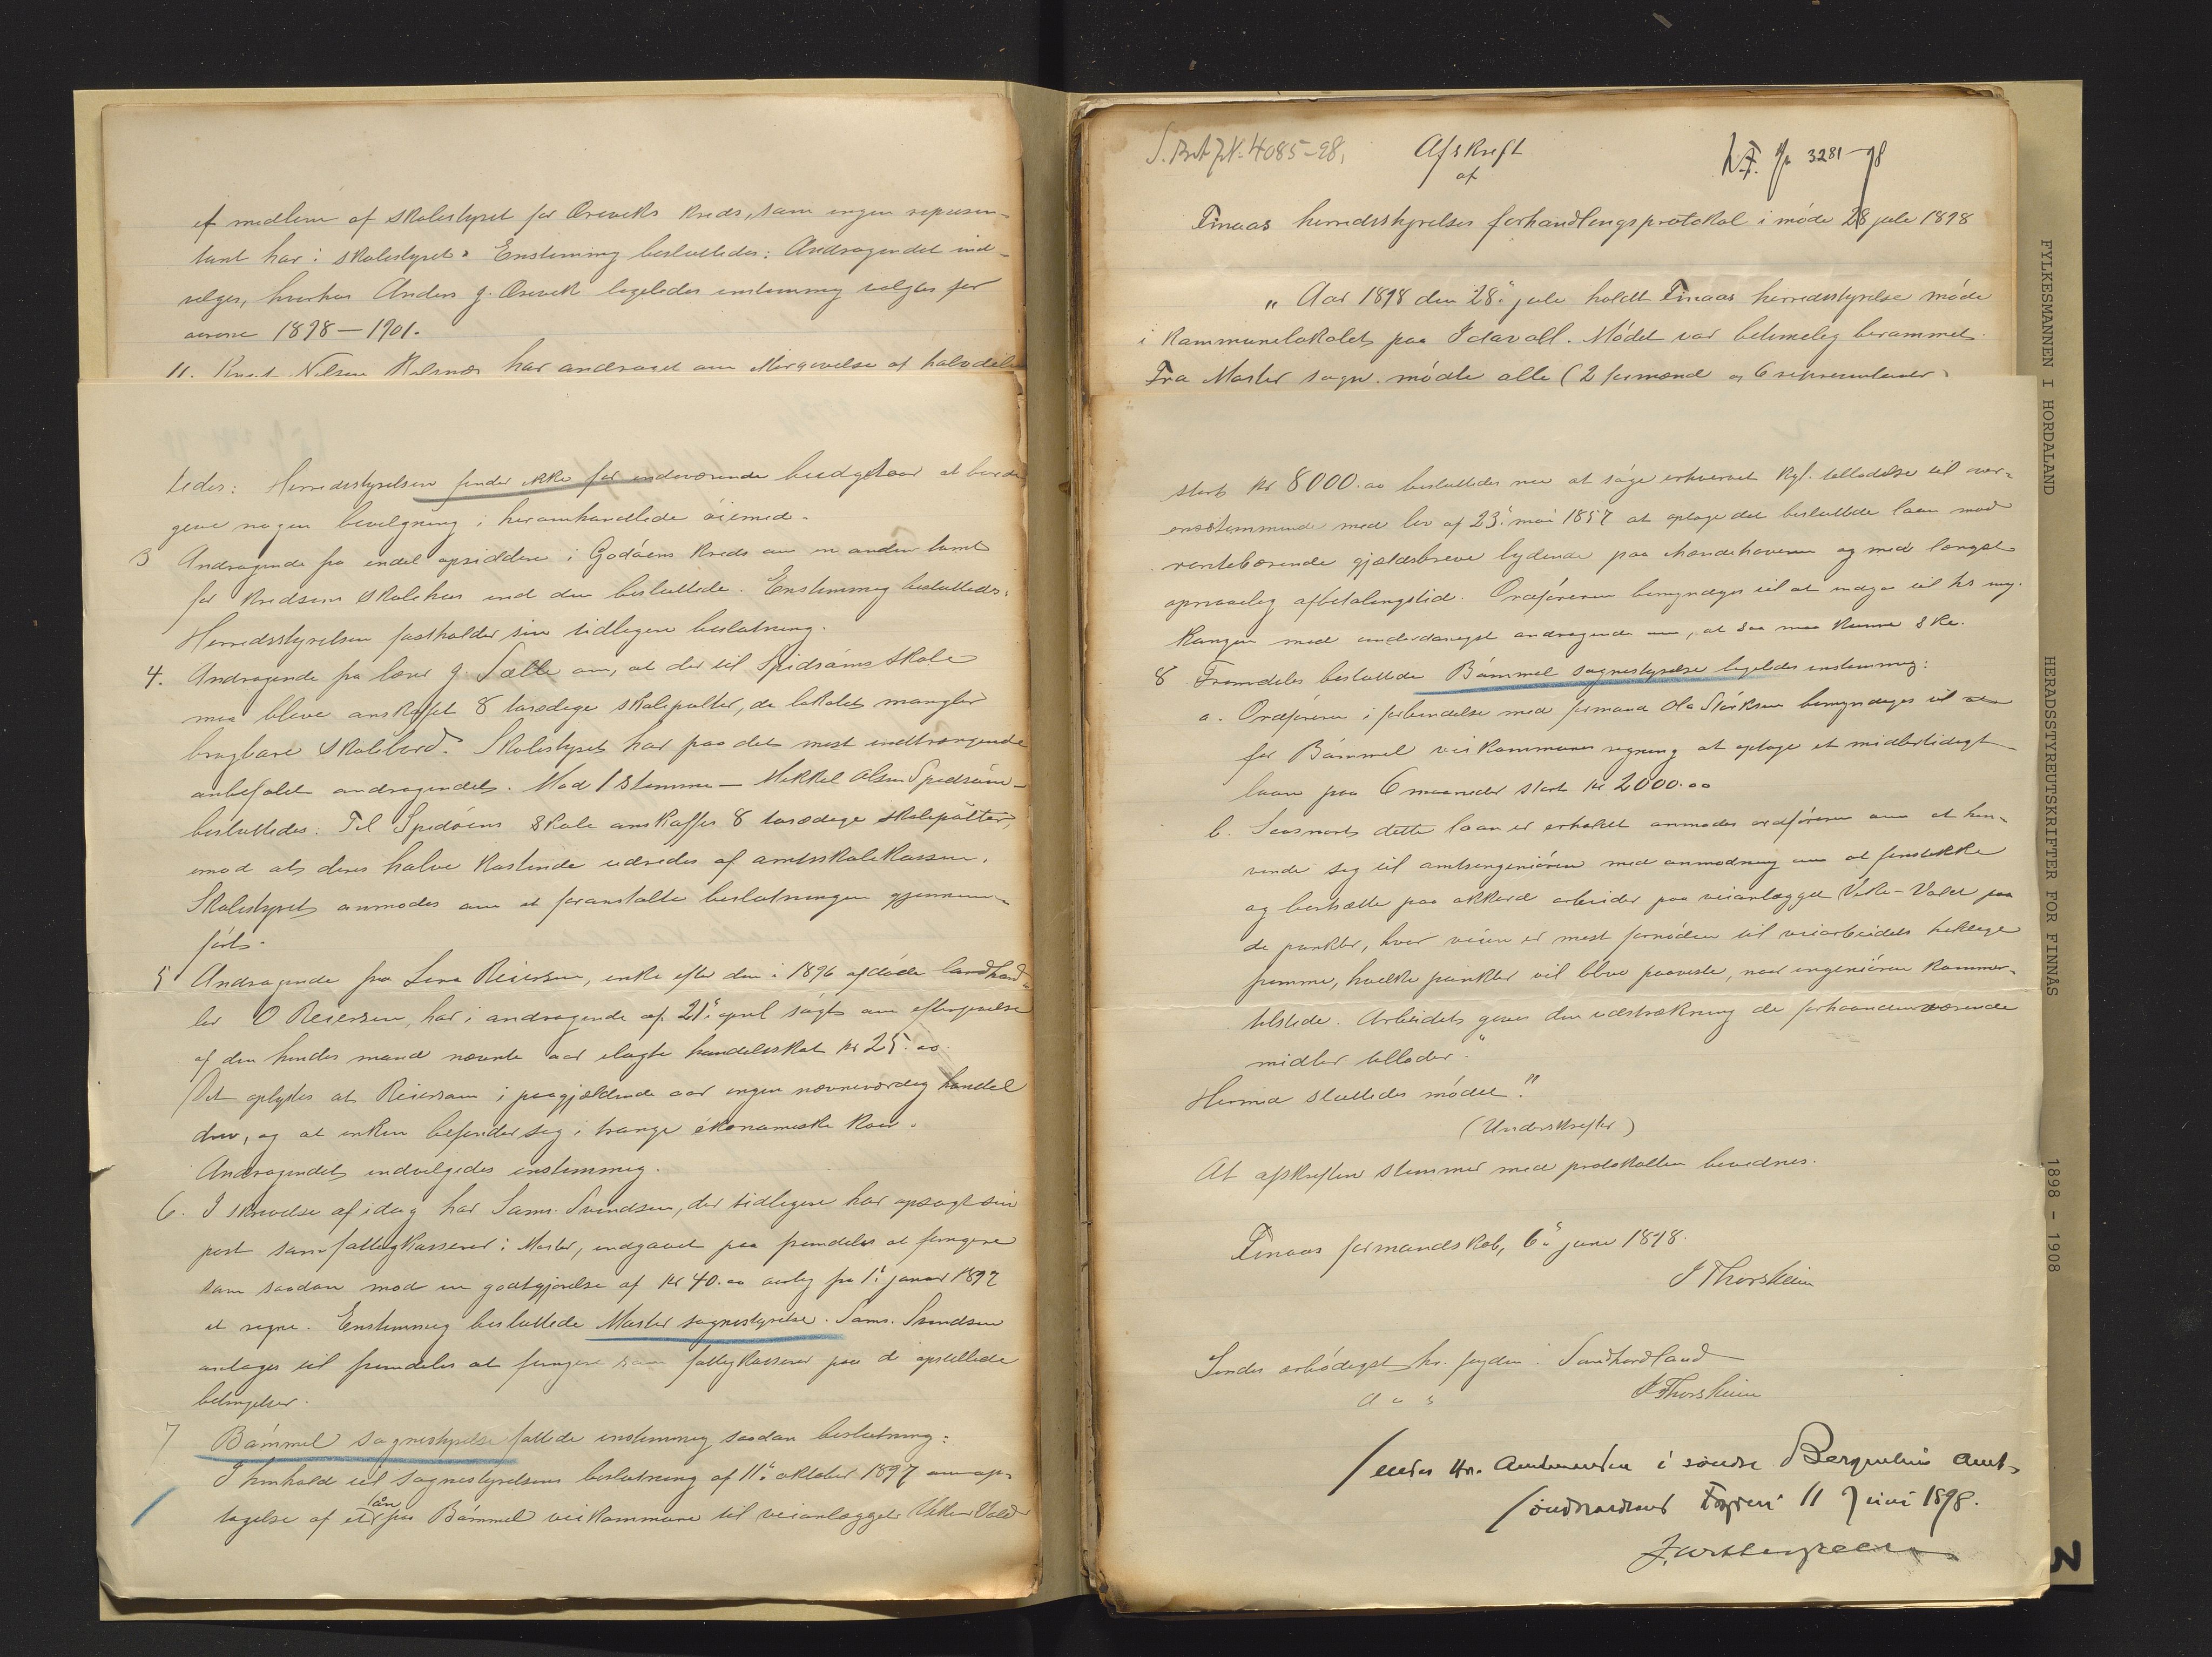 et medlem af skolestyret for Øreviks kreds, som ingen repræsen-
tant har i skolestyret. Enstemmig besluttedes: Andragendet ind-
vilges, hvorhos Anders J. Ørevik ligeledes enstemmig valgtes for
aarene 1898-1901.
11. Nilsen har andraget om eftergivelse af halvdelen
tedes: Herredsstyrelsen finder ikke for indeværende budgetaar at burde
give nogen bevilgning i heromhandlede øiemed.
3 Andragende fra endel opsiddere i Godøens kreds om en anden tomt
for kredsens skolehus end den besluttede. Enstemmig besluttedes:
Herredsstyrelsen fastholder sin tidligere beslutning.
4. Andragende fra lærer J. Sætte om, at der til Spidsøens skole
maa blive anskaffet 8 tosædige skolepulter, da lokalet mangler
brugbare skolebord. Skolestyret har paa det mest indtrængende
anbefalet andragendet. Mod 1 stemme - Mikkel Olsen Spidsøen -
besluttedes: Til Spidsøens skole anskaffes 8 tosædige skolepulter,
imod at deres halve kostende udredes af amtsskolekassen.
Skolestyret anmodes om at foranstalte beslutningen gjennem-
ført.
5 Andragende fra Lina Reiersen, enke efter den i 1896 afdøde landhand-
ler O Reiersen, har i andragende af 21. april søgt om eftergivelse
af den hendes mand nævnte aar ilagte handelsskat kr 25.00.
Det oplystes at Reiersen i paagjældende aar ingen nævneværdig handel
drev, og at enken befinder sig i trange økonomiske kaar.
Andragendet indvilgedes enstemmig.
6. I skrivelse af idag har Sams. Svendsen, der tidligere har opsagt sin
post som fattigkasserer i Moster, indgaaet paa fremdeles at fungere
som saadan mod en godtgjørelse af kr 40.00 aarlig fra 1. januar 1897
at regne. Enstemmig besluttede Moster sognestyrelse: Sams. Svendsen
antages til fremdeles at fungere som fattigkasserer paa de opstillede
betingelser.
7 Bømmel sognestyrelse fattede enstemmig saadan beslutning:
I henhold til sognestyrelsens beslutning af 11. oktober 1897 om op-
tagelse af et lån for Bømmel veikommune til veianlægget Vike-Valde
S. Brt. JN. 4085-98.
Afskrift
af
3281-98
Finaas herredsstyrelses forhandlingsprotokol i møde 28 jule 1898
"Aar 1898 den 28. jule holdt Finaas herredsstyrelse møde
i kommunelokalet paa Idavoll. Mødet var betimelig berammet.
Fra Moster sogn mødte alle (2 formænd og 6 repræsentanter
stort kr 8000.00 besluttedes nu at søge erhvervet kgl. tilladelse til over-
ensstemmende med lov af 23. mai 1857 at optage det besluttede laan mod
rentebærende gjældsbreve lydende paa ihændehaveren og med længst
opnaaelig afbetalingstid. Ordføreren bemyndiges til at indgaa til hs maj.
kongen med underdanigst andragende om, at saa maa kunne ske.
8 Fremdeles besluttede Bømmel sognestyrelse ligeledes enstemmig:
a. Ordføreren i forbindelse med formand Ola Størksen bemyndiges til at
for Bømmel veikommunes regning at optage et midlertidigt
laan paa 6 maaneder stort kr 2000.00
b. Saasnart dette laan er erholdt anmodes ordføreren om at hen-
vende sig til amtsingeniøren med anmodning om at finstikke
og bortsætte paa akkord arbeider paa veianlægget Vike-Valde paa
de punkter, hvor veien er mest fornøden til veiarbeidets heldige
fremme, hvilke punkter vil blive paaviste, naar ingeniøren kommer
tilstede. Arbeidet gives den udstrækning de forhaandenværende
midler tillader."
Hermed sluttedes mødet."
(Underskrifter)
At afskriften stemmer med protokollen bevidnes.
Finaas formandskab, 6. june 1898.
J Thorsheim
Sendes ærbødigst hr. fogden i Søndhordland
J Thorsheim
Sendes Hr. Amtmanden i søndre Bergenhus Amt.
Søndhordland Fogderi 11 Juni 1898.
FYLKESMANNEN I HORDALAND
HERADSSTYREUTSKRIFTER FOR FINNÅS
1898 - 1908
3